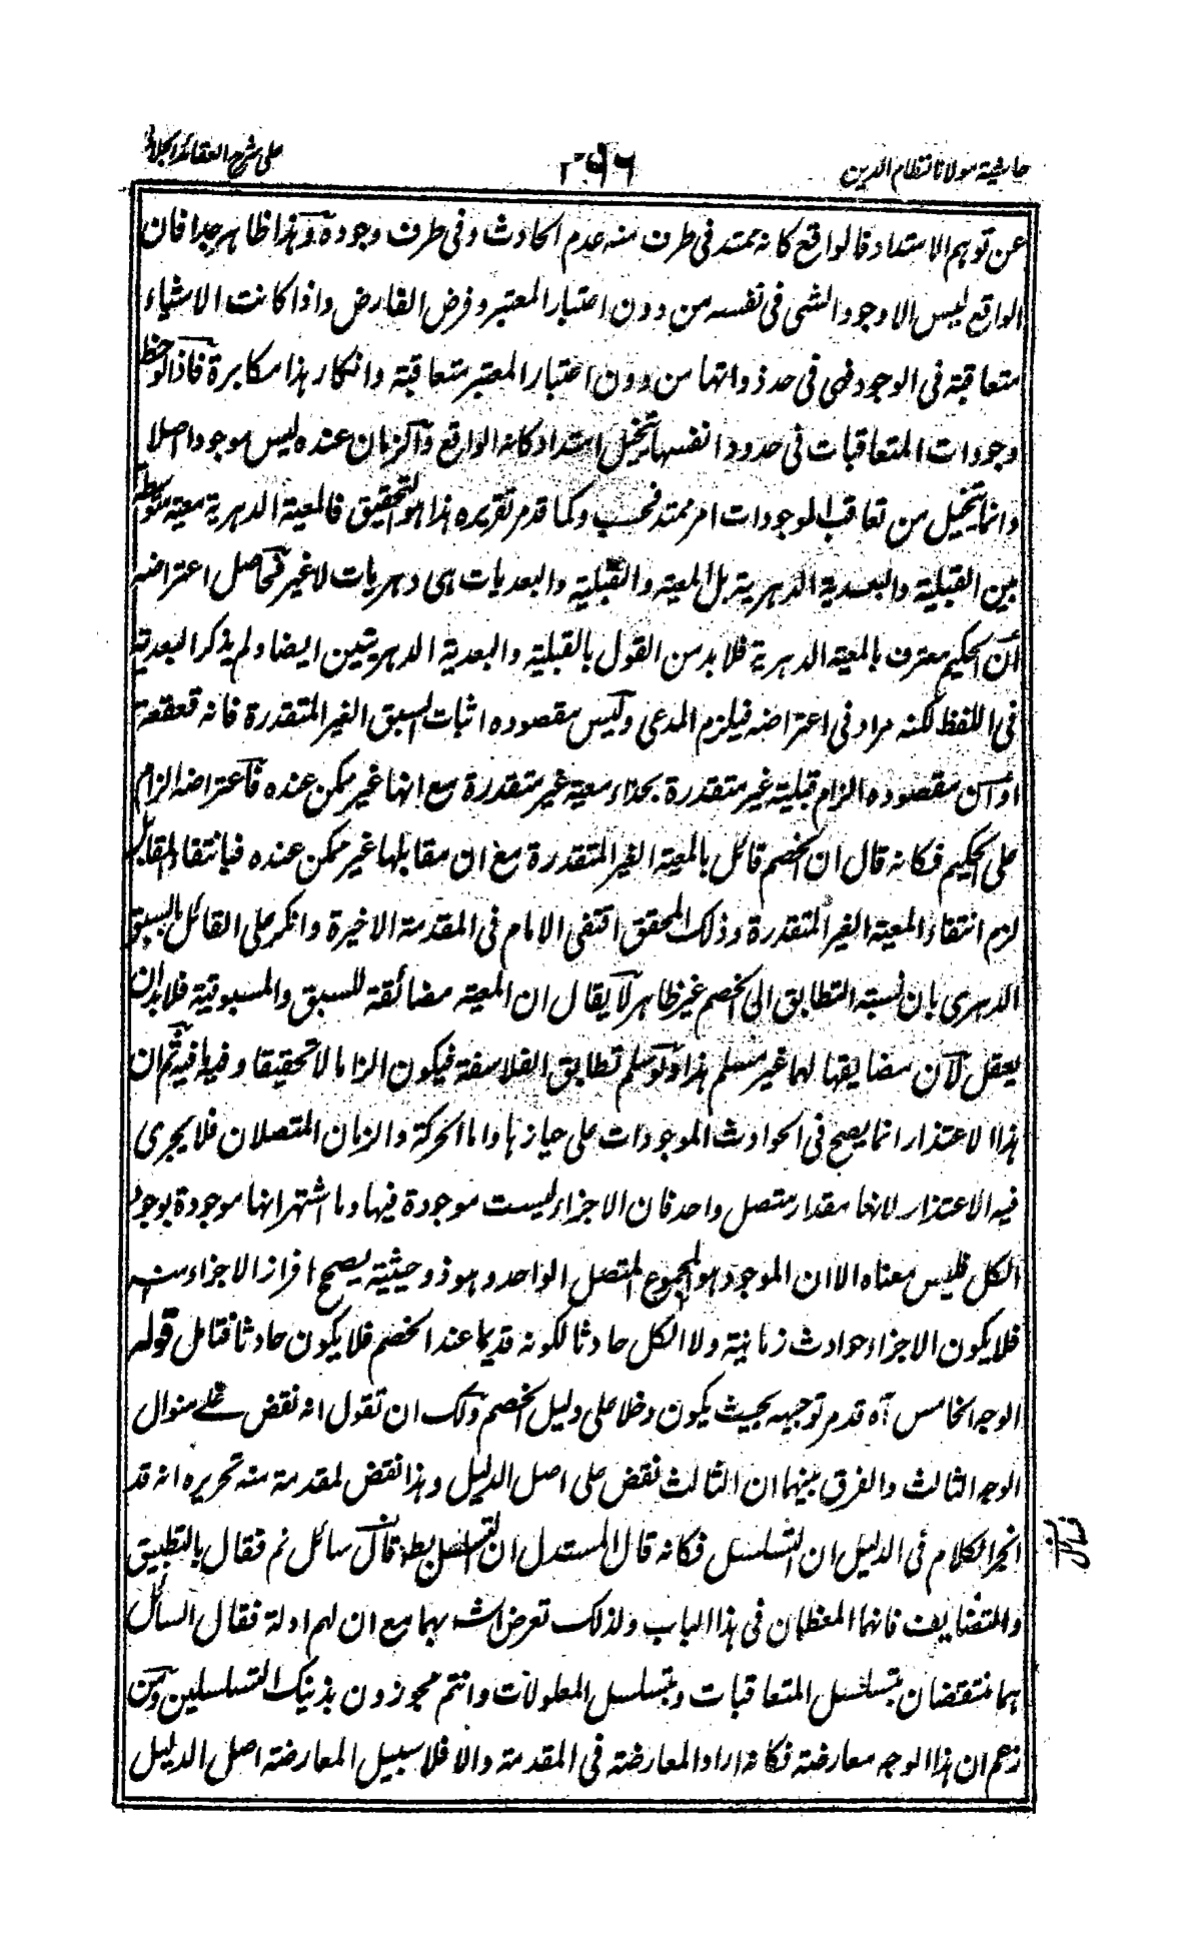 حاشية مولانا نظام الدين
٢٩٦
على شرح العقائد الجلالى
عن توهم الامتداد فالواقع كانه ممتد فى طرف منه عدم الحادث وفى طرف وجوده وهذا ظاهر جدا فان
الواقع ليس الا وجود الشى فى نفسه من دون اعتبار المعتبر و فرض الفارض واذا كانت الاشياء
متعاقبة فى الوجود فهى فى حد ذواتها من دون اعتبار المعتبر متعاقبة وانكار هذا مكابرة فاذا لوحظ
وجودات المتعاقبات فى حدود انفسها يتخيل امتداد كانه الواقع والزمان عنده ليس موجودا اصلا
وانما يتخيل من تعاقب الموجودات امر ممتد فحسب وكما قدم تقريره هذا هو التحقيق فالمعية الدهرية معية متوسطة
بين القبلية والبعدية الدهرية بل المعية والقبلية والبعديات هى دهريات لا غير فحاصل اعتراضه
ان الحكيم معترف بالمعية الدهرية فلا بد من القول بالقبلية والبعدية الدهريتين ايضا ولم يذكر البعدية
فى اللفظ لكنه مراد فى اعتراضه فيلزم المدعى وليس مقصوده اثبات السبق الغير المتقدرة فانه قعقعة
او ان مقصوده الزام قبلية غير متقدرة بحذاء معية غير متقدرة مع انها غير ممكن عنده فاعتراضه الزام
على الحكيم فكانه قال ان الخصم قائل بالمعية الغير المتقدرة مع ان مقابلها غير ممكن عنده فبانتفاء المقابل
لزم انتفاء المعية الغير المتقدرة وذلك المحقق اقتفى الامام فى المقدمة الاخيرة وانكر على القائل بالسبق
الدهرى بان نسبة التطابق الى الخصم غير ظاهر لا يقال ان المعية مضائفة للسبق والمسبوقية فلا بد ان
يعقل لان مضايفتها لهما غير مسلم هذا ولو سلم تطابق الفلاسفة فيكون الزاما لا تحقيقا وفيه ما فيه ثم ان
هذا الاعتذار انما يصح فى الحوادث الموجودات على حيازها واما الحركة والزمان المتصلان فلا يجرى
فيه الاعتذار لانهما مقدار متصل واحد فان الاجزاء ليست موجودة فيها وما اشتهر انها موجودة بوجود
الكل فليس معناه الا ان الموجود هو المجموع المتصل الواحد وهو ذو حيثية يصح افراز الاجزاء منه
فلا يكون الاجزاء حوادث زمانية ولا الكل حادثا لكونه قديما عند الخصم فلا يكون حادثا فتامل قوله
الوجه الخامس آه قدم توجيهه بحيث يكون دخلا على دليل الخصم ولك ان تقول انه نقض على منوال
الوجه الثالث والفرق بينهما ان الثالث نقض على اصل الدليل وهذا نقض لمقدمة منه تحريره انه قد
انجر الكلام فى الدليل ان التسلسل فكانه قال المستدل ان التسلسل بط فان قال سائل لم فقال بالتطبيق
والتضايف فانهما المعظمان فى هذا الباب ولذلك تعرض الش بهما مع ان لهم ادلة فقال السائل
هما منتقضان بتسلسل المتعاقبات وبتسلسل المعلولات وانتم مجوزون بذينك التسلسلين ومن
زعم ان هذا الوجه معارضة فكانه اراد المعارضة فى المقدمة والا فلا سبيل المعارضة اصل الدليل